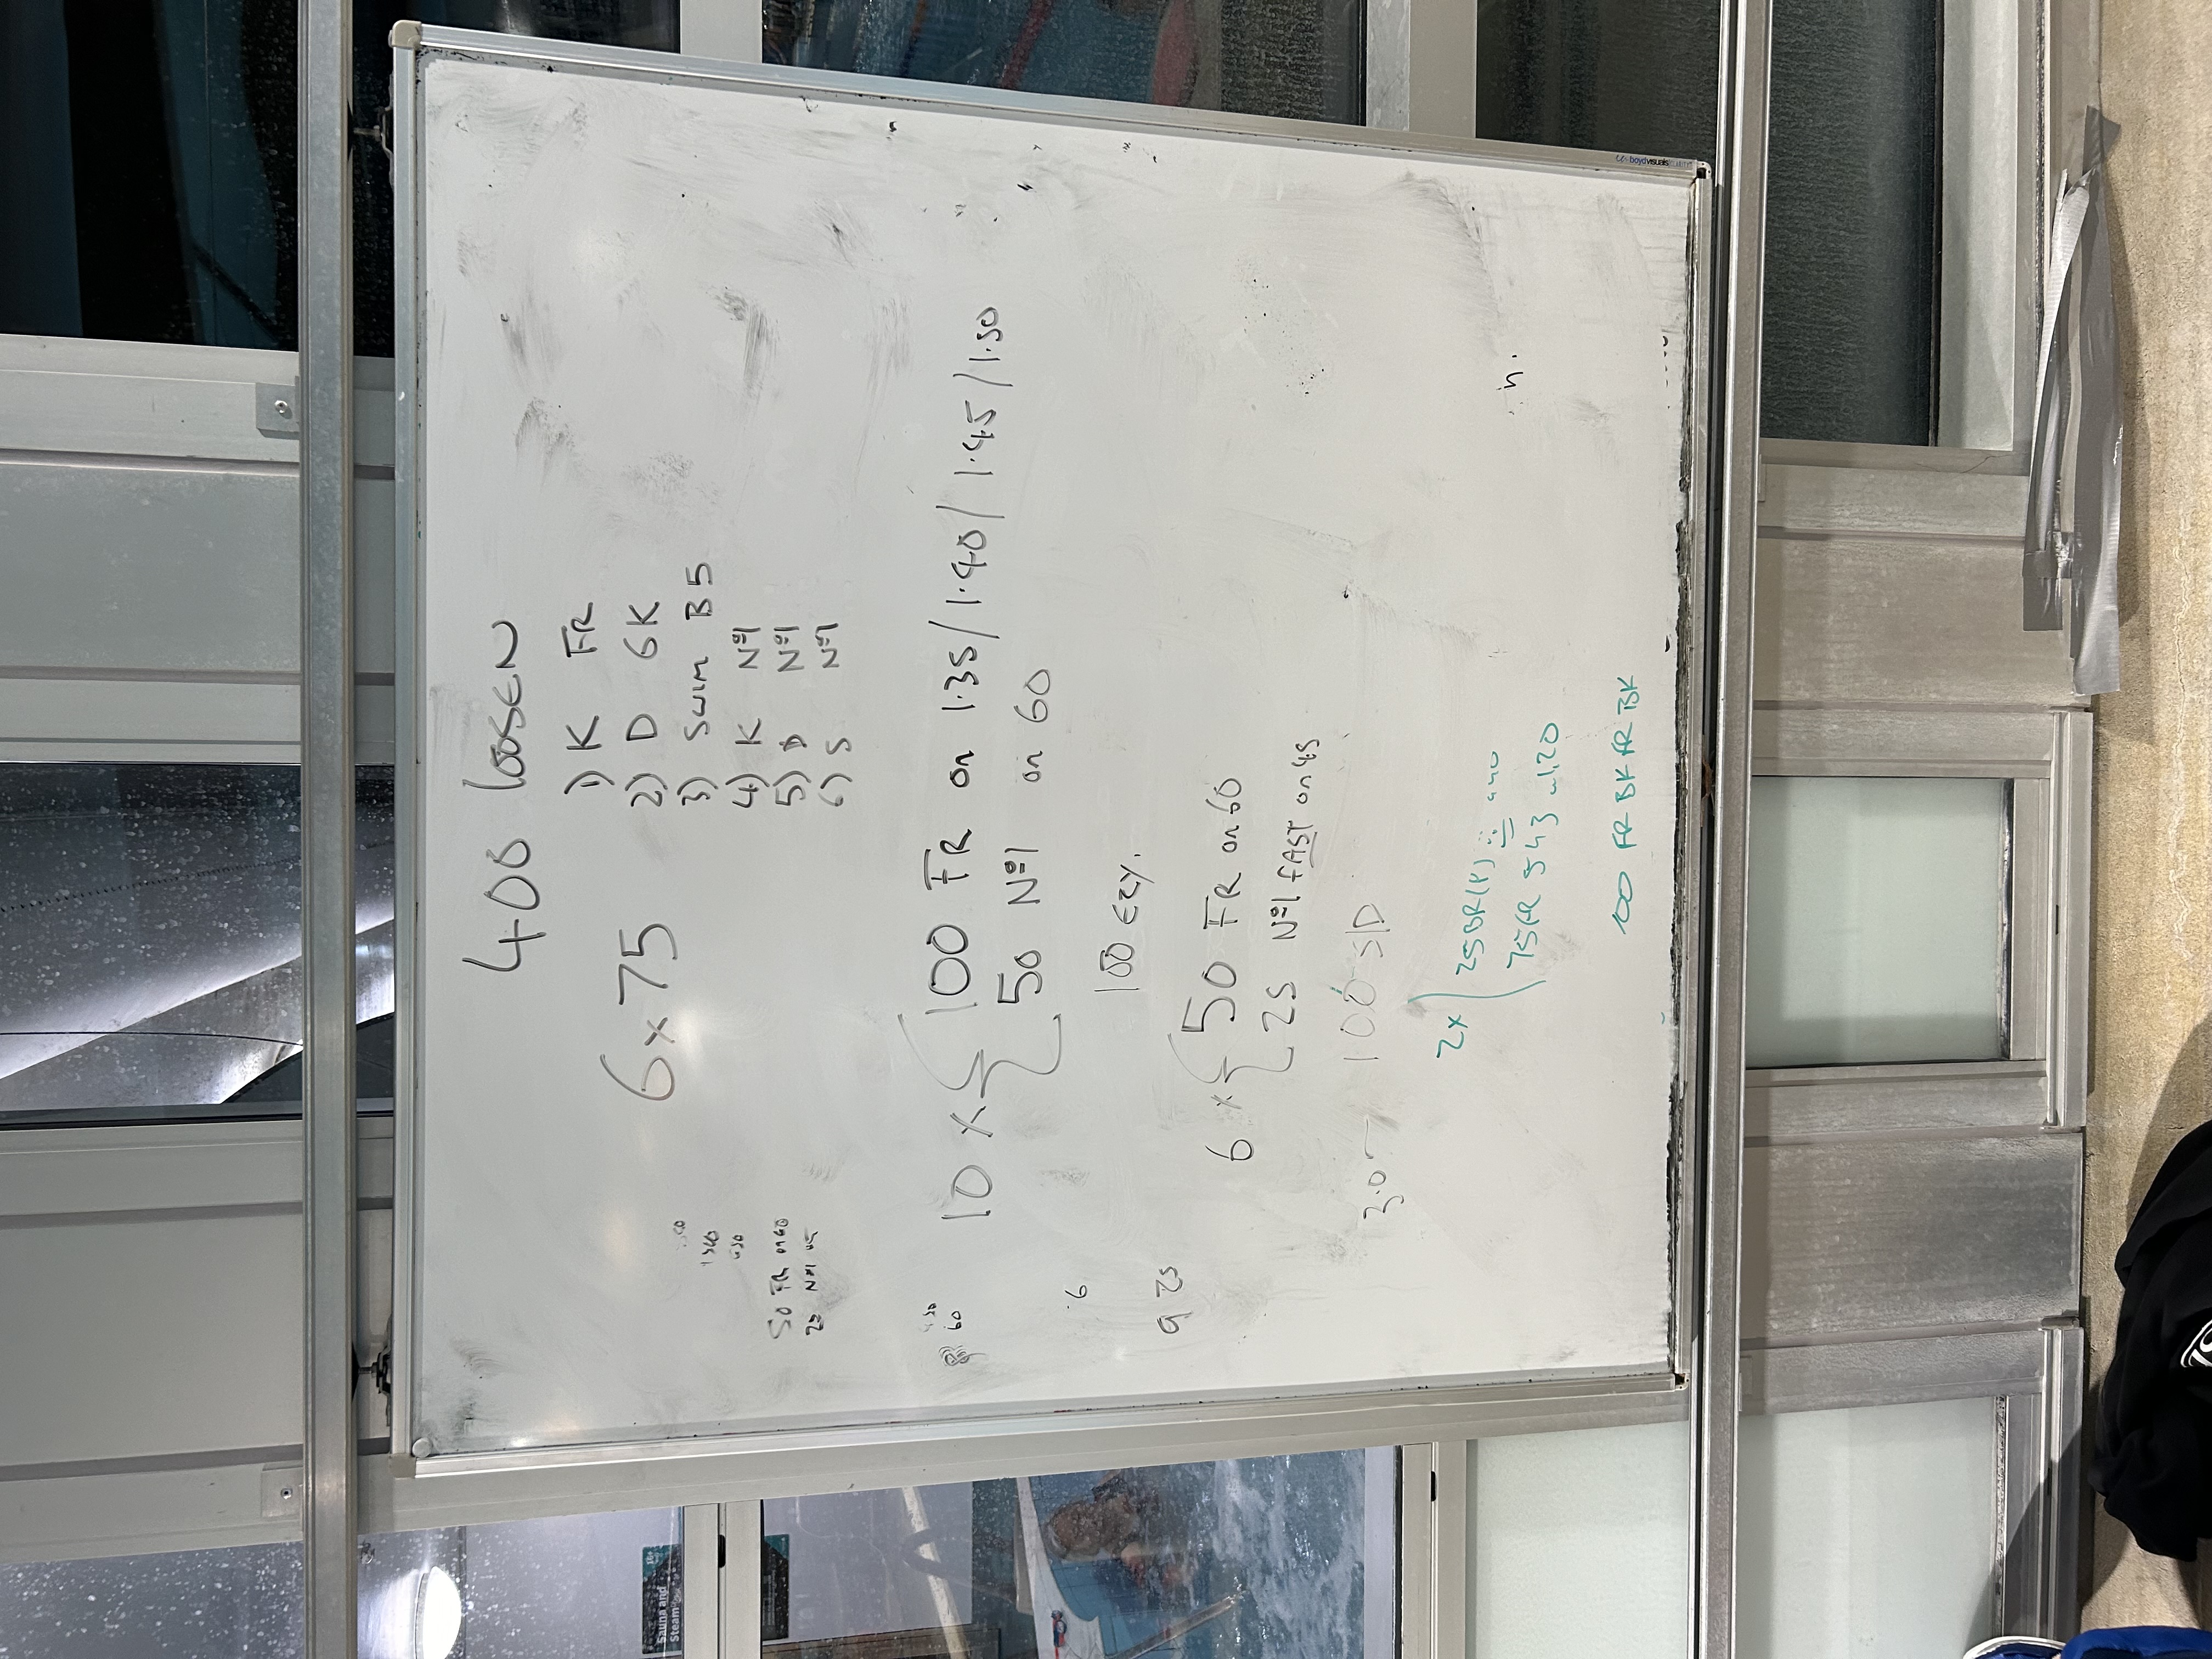 400 LOOSEN
6 x 75
1) K FR
2) D 6K
3) SWIM B5
4) K Nº1
5) D Nº1
6) S Nº1
50 FR on 60
25 Nº1
10 x { 100 FR on 1.35/1.40/1.45/1.50
50 Nº1 on 60
60
6
100 EZY.
9 25
6 x { 50 FR on 60
25 Nº1 FAST on 45
100 S/D
3.0
2x ( 25 BR(P)
75 FR 5 4 3 1.20
100 FR BK FR BK
boydvisuals
Sauna and
Steam